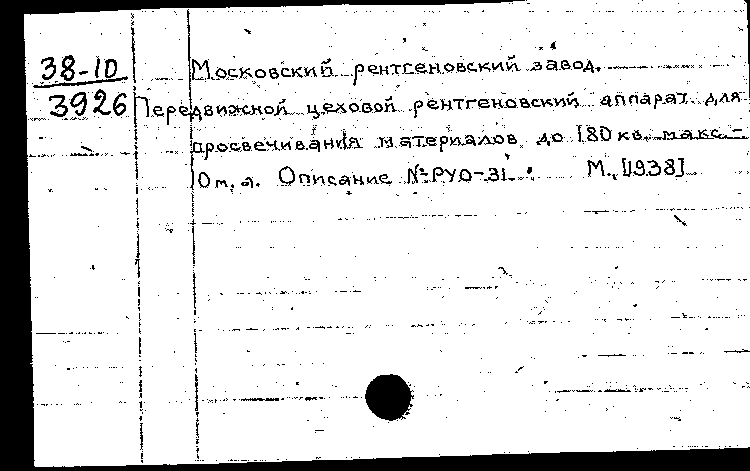 38-10
Московский рентгеновский завод.
3926
Передвижной цеховой рентгеновский аппарат для
просвечивания материалов до 180 кв. макс.-
10 м.а. Описание № РУО-31. М., [1938]